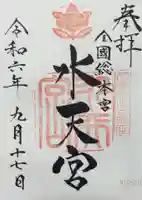 奉拝
全国総本宮
水天宮
令和六年
九月十七日